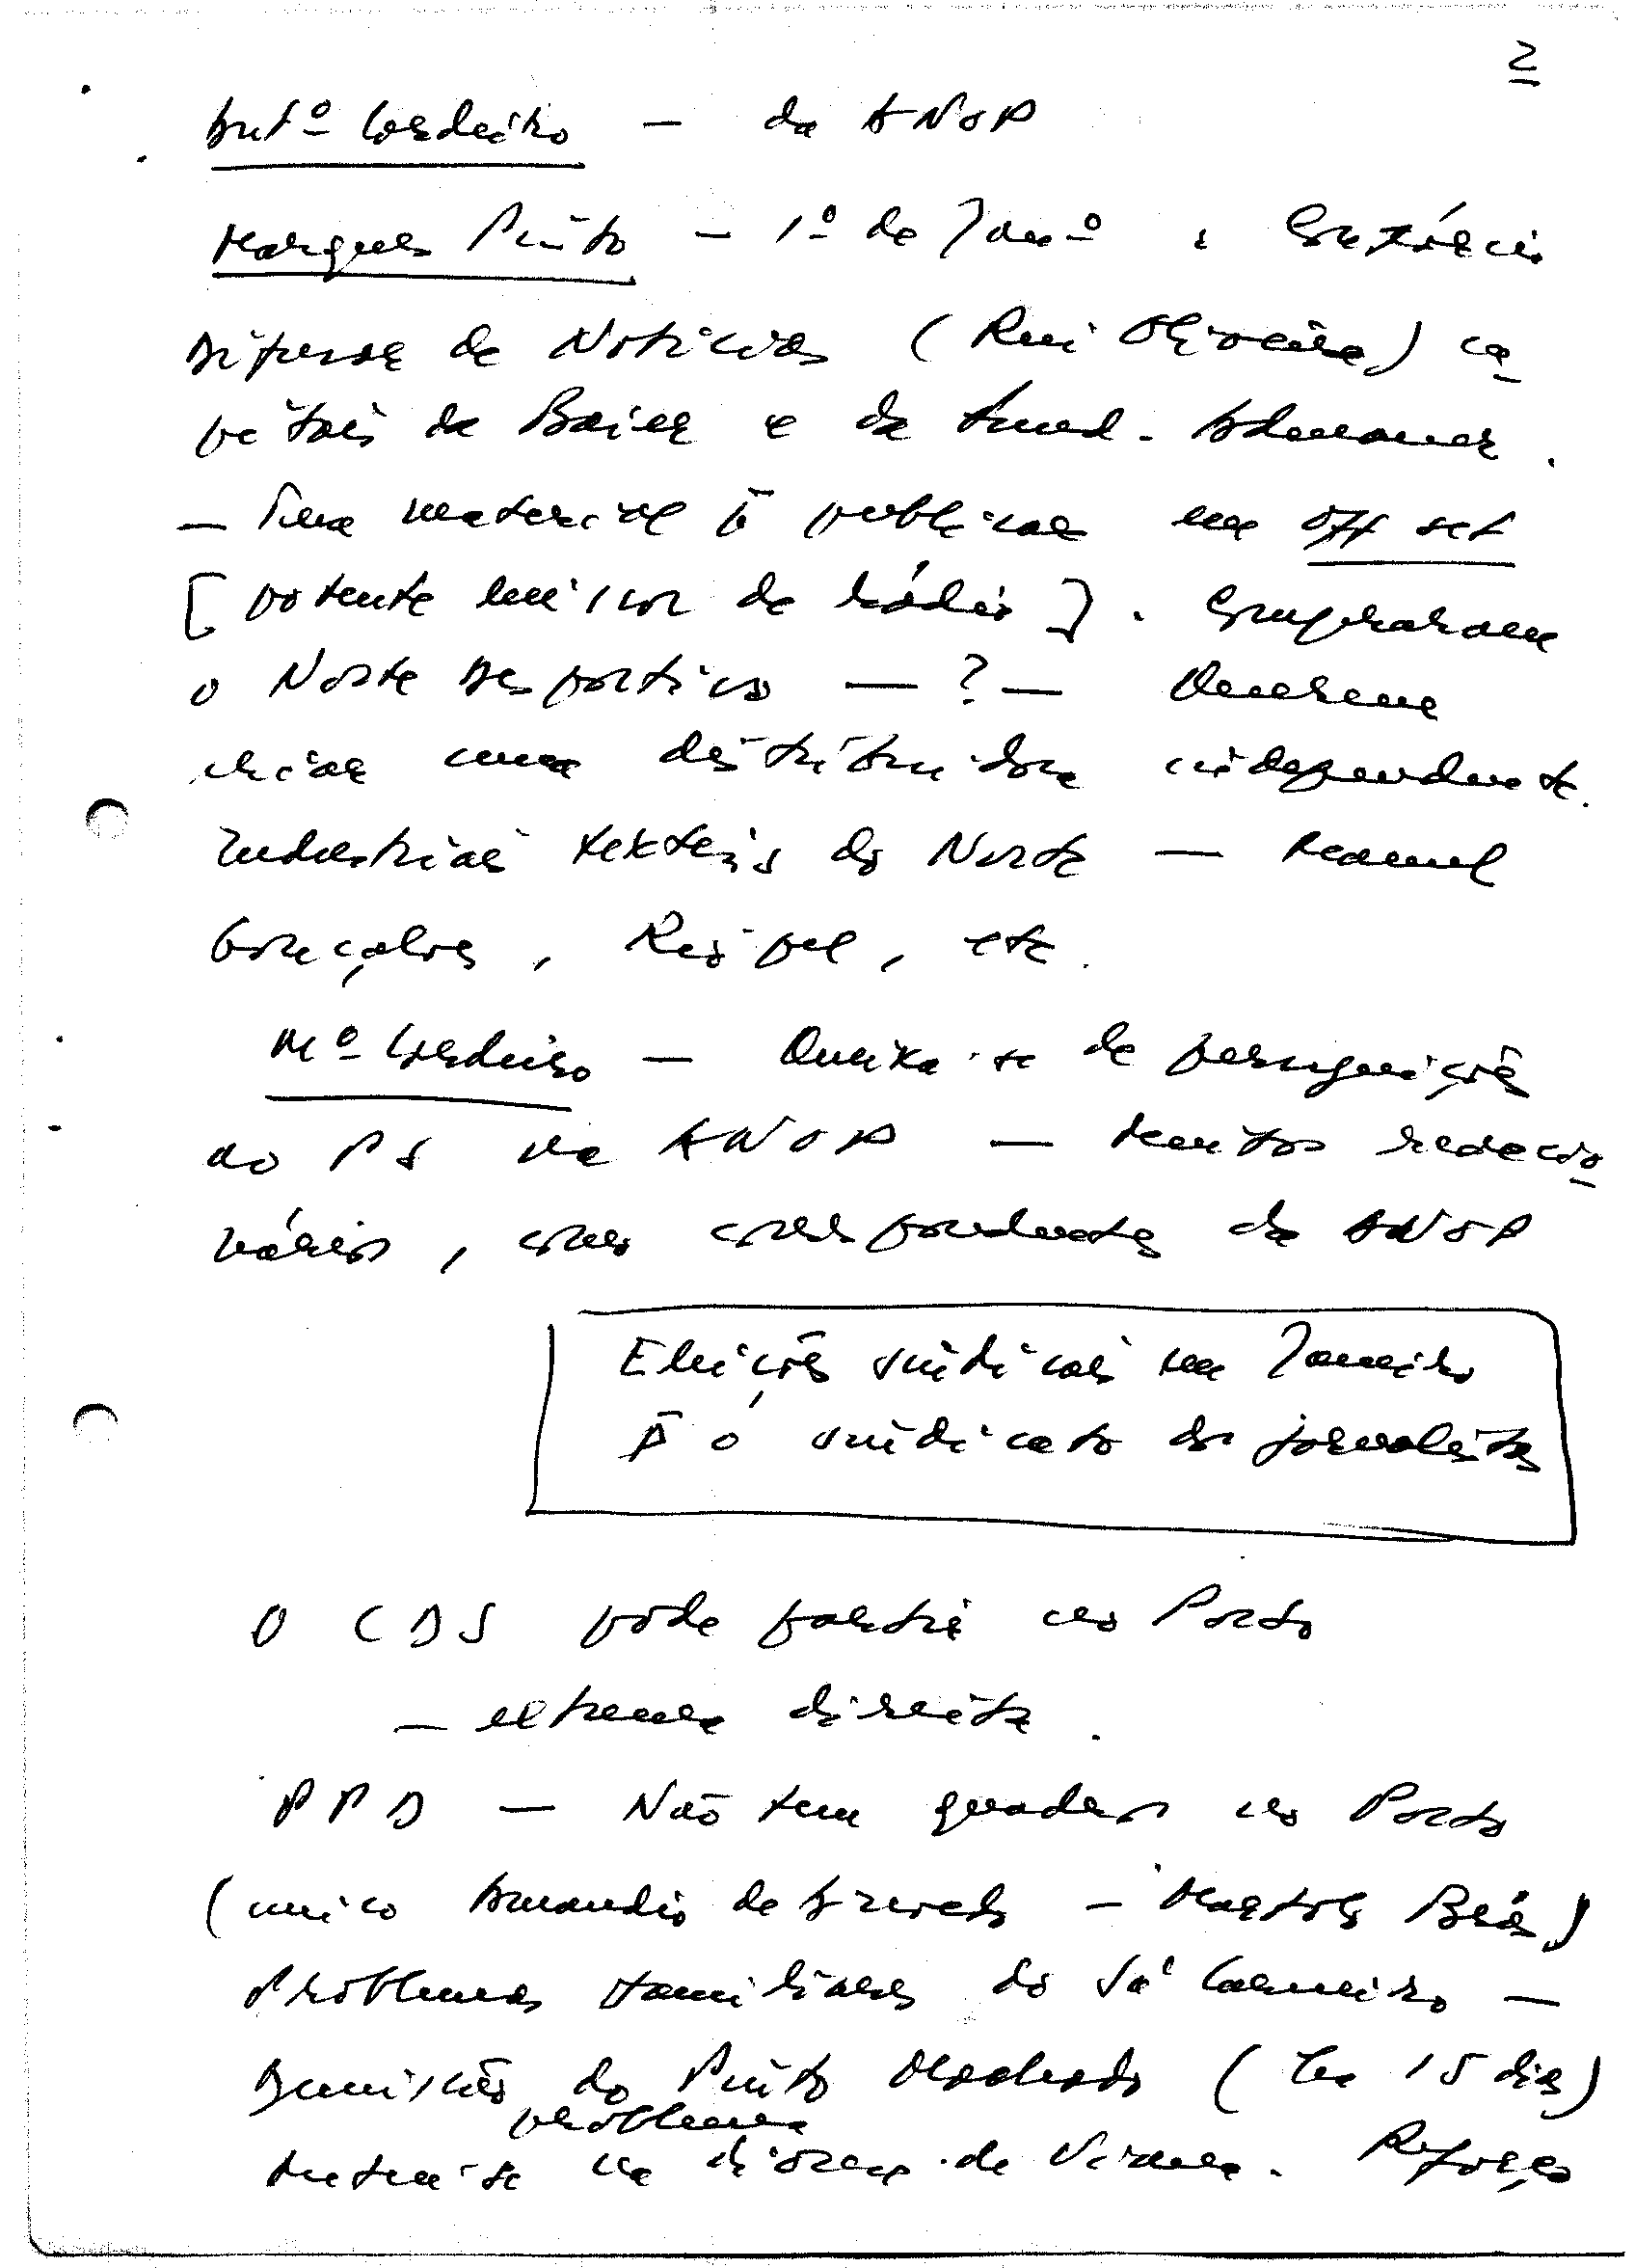 2
Antº Cordeiro — da ANOP
Marques Pinto — 1º de Janº e Consórcio
Difusor de Notícias (Rui Oliveira) ca
pitais da Baier e da Fund. Adenauer.
— Tem material p̄ publicar em off set
[potente emissor de rádio]. Compraram
o Norte Desportivo — ? — Querem
criar uma distribuidora independente.
Industriais têxteis do Norte — Manuel
Gonçalves, Riopel, etc.
Mº Cordeiro — Queixa-se de perseguições
do PS na ANOP — muitos redacio
nários, como correspondentes da ANOP
Eleições sindicais em Janeiro
p̄ o sindicato dos jornalistas
O CDS pode partir no Porto
— extrema direita.
PPD — Não tem quadros no Porto
(único Amandio de Azevedo — Braga)
Problemas familiares do Sá Carneiro —
Demissão do Pinto Machado (há 15 dias)
problema
na diocese de Viana. Reforço